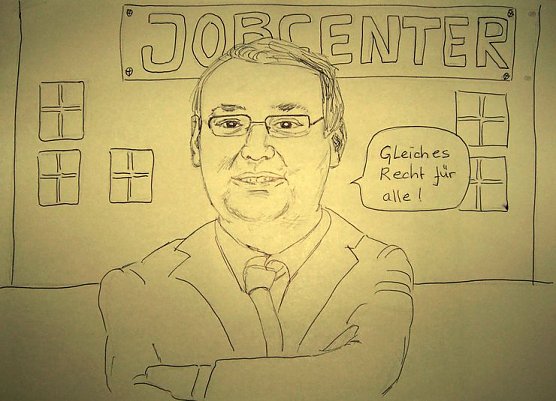 JOBCENTER
Gleiches
Recht für
alle!